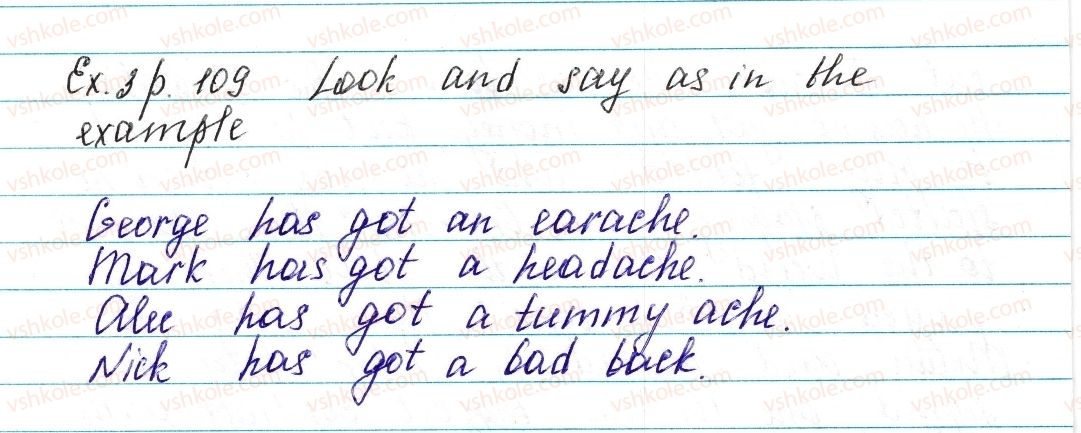 Ex. 3 p. 109 Look and say as in the
example
George has got an earache.
Mark has got a headache.
Alec has got a tummy ache.
Nick has got a bad back.
vshkole.com